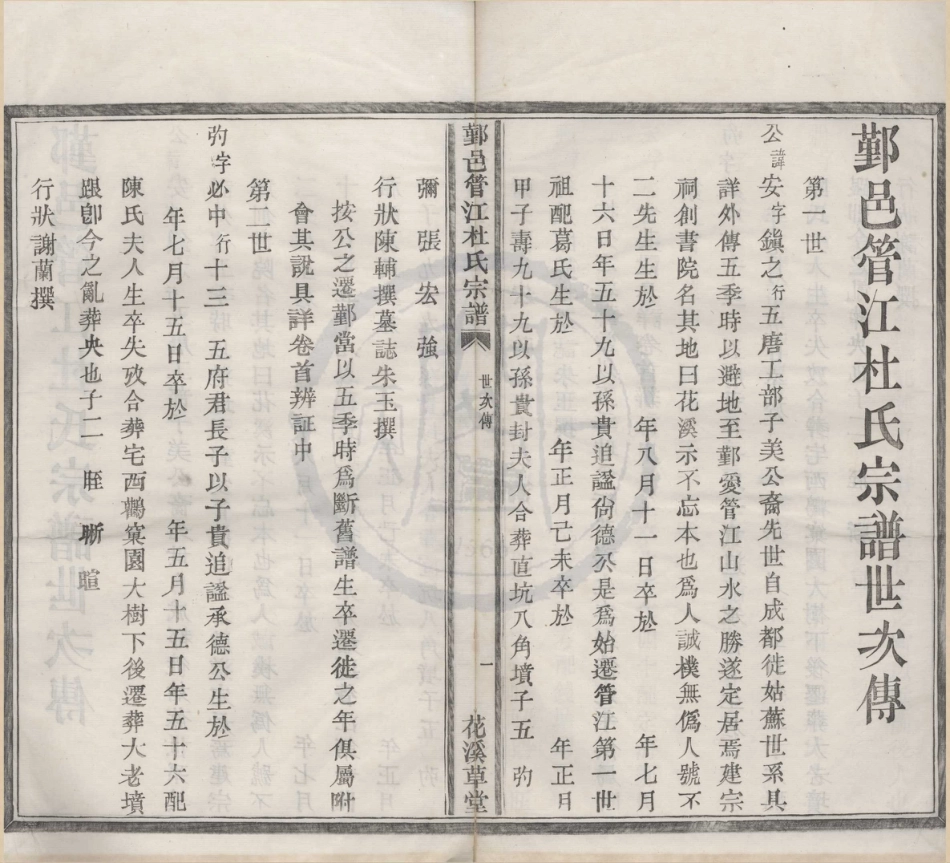 鄞邑管江杜氏宗譜世次傳
第一世
公諱安字鎭之行五唐工部子美公裔先世自成都徙姑蘇世系具
詳外傳五季時以避地至鄞愛管江山水之勝遂定居焉建宗
祠創書院名其地曰花溪示不忘本也爲人誠樸無僞人號不
二先生生於　年八月十一日卒於　年七月
十六日年五十九以孫貴追諡尙德公是爲始遷管江第一世
祖配葛氏生於　年正月己未卒於　年正月
甲子壽九十九以孫貴封夫人合葬直坑八角墳子五　彴
鄞邑管江杜氏宗譜　世次傳　一　花溪草堂
彌　張　宏　強
行狀陳輔撰墓誌朱玉撰
按公之遷鄞當以五季時爲斷舊譜生卒遷徙之年俱屬附
會其說具詳卷首辨証中
第二世
彴字必中行十三　五府君長子以子貴追諡承德公生於
年七月十五日卒於　年五月十五日年五十六配
陳氏夫人生卒失攷合葬宅西鸛窠園大樹下後遷葬大老墳
跟卽今之亂葬央也子二　晊　晰　暄
行狀謝蘭撰